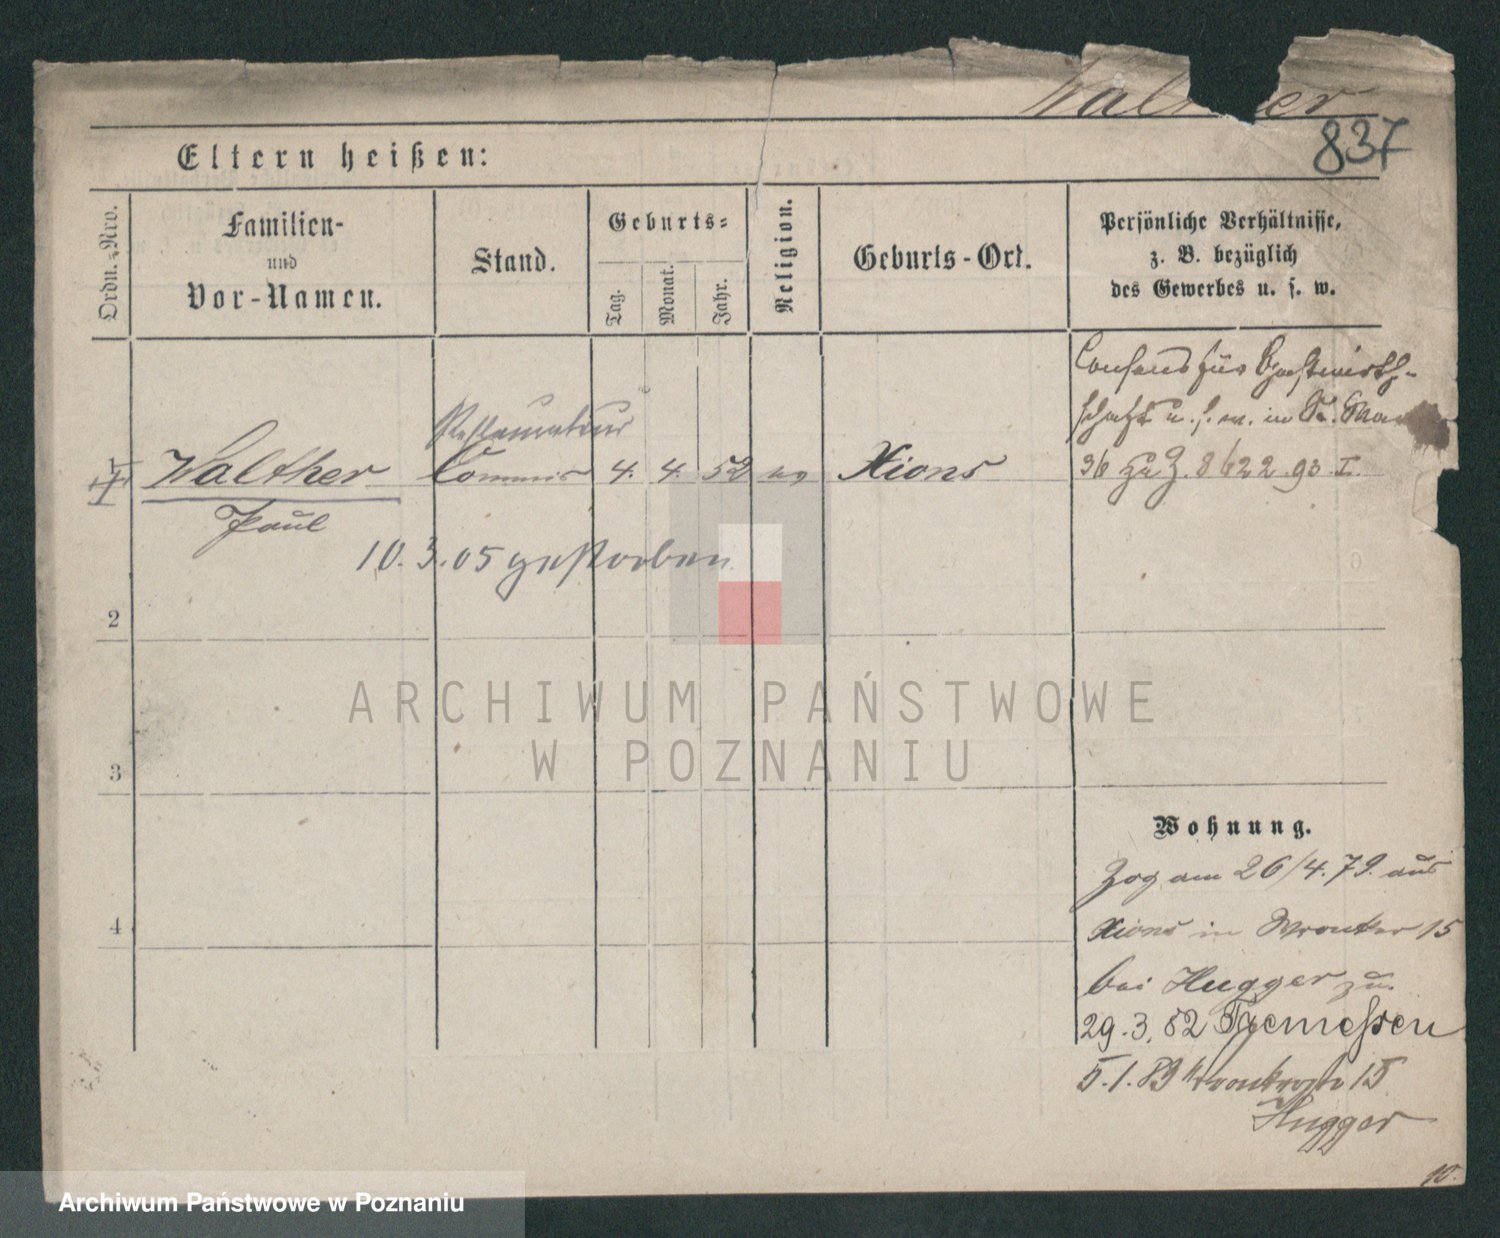 Walther
837
Eltern heißen:
Ordn.-Nro.
Familien-
und
Vor-Namen.
Stand.
Geburts-
Tag.
Monat.
Jahr.
Religion.
Geburts-Ort.
Persönliche Verhältnisse,
z. B. bezüglich
des Gewerbes u. s. w.
Consens für Gastwirth-
schaft u. s. w. in St. Mar
36 8622.93.I.
Restaurateur
Walther Commis 4. 4. 52 ev Xions
Paul
10.3.05 gestorben
2
3
4
Wohnung.
Zog am 26/4.79. aus
Xions in Wronker 15
bei Hugger zu.
29.3.82 Tremessen
5.1.83 15
Hugger
10.
ARCHIWUM PAŃSTWOWE
W POZNANIU
Archiwum Państwowe w Poznaniu